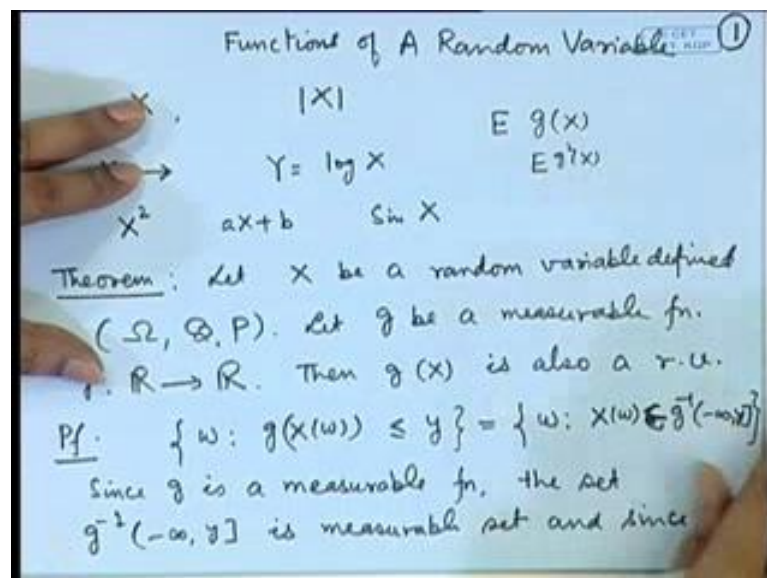 Functions of A Random Variable ①
X, |X| E g(X)
→ Y = log X E g²(X)
X² aX+b Sin X
Theorem : Let X be a random variable defined
(Ω, B, P). Let g be a measurable fn.
ℝ → ℝ. Then g(X) is also a r.v.
Pf. {ω: g(X(ω)) ≤ y} = {ω: X(ω) ∈ g⁻¹(-∞, y]}
Since g is a measurable fn, the set
g⁻¹(-∞, y] is measurable set and since